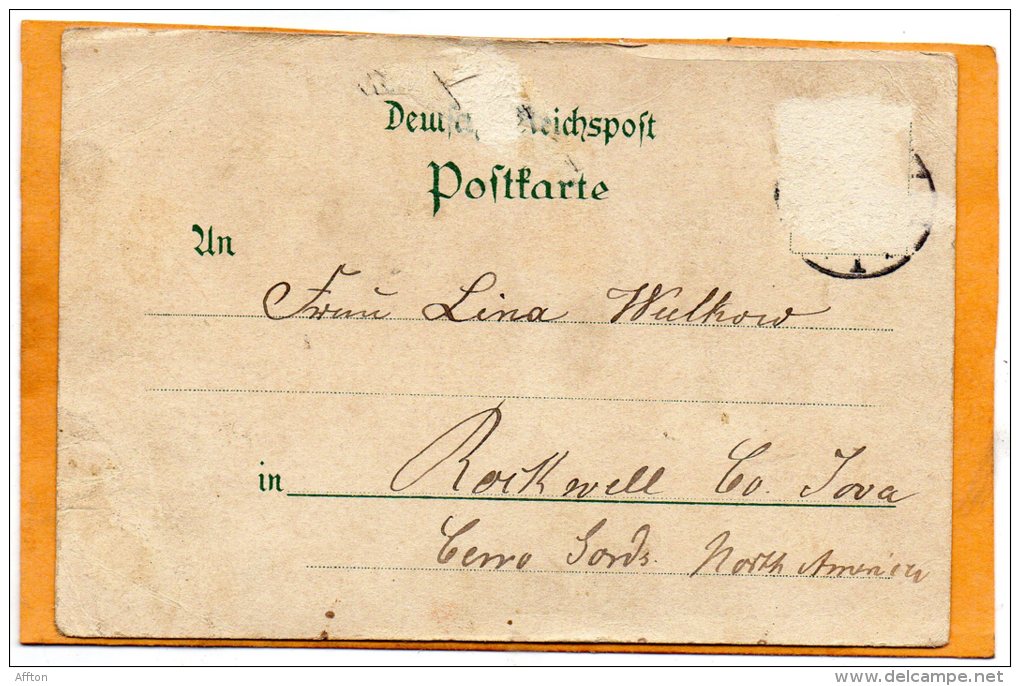 Reichspost
Postkarte
An
Frau Lina Wulkow
in Rockwell Co. Iova
Cerro Gords. North America
Affton
www.delcampe.net